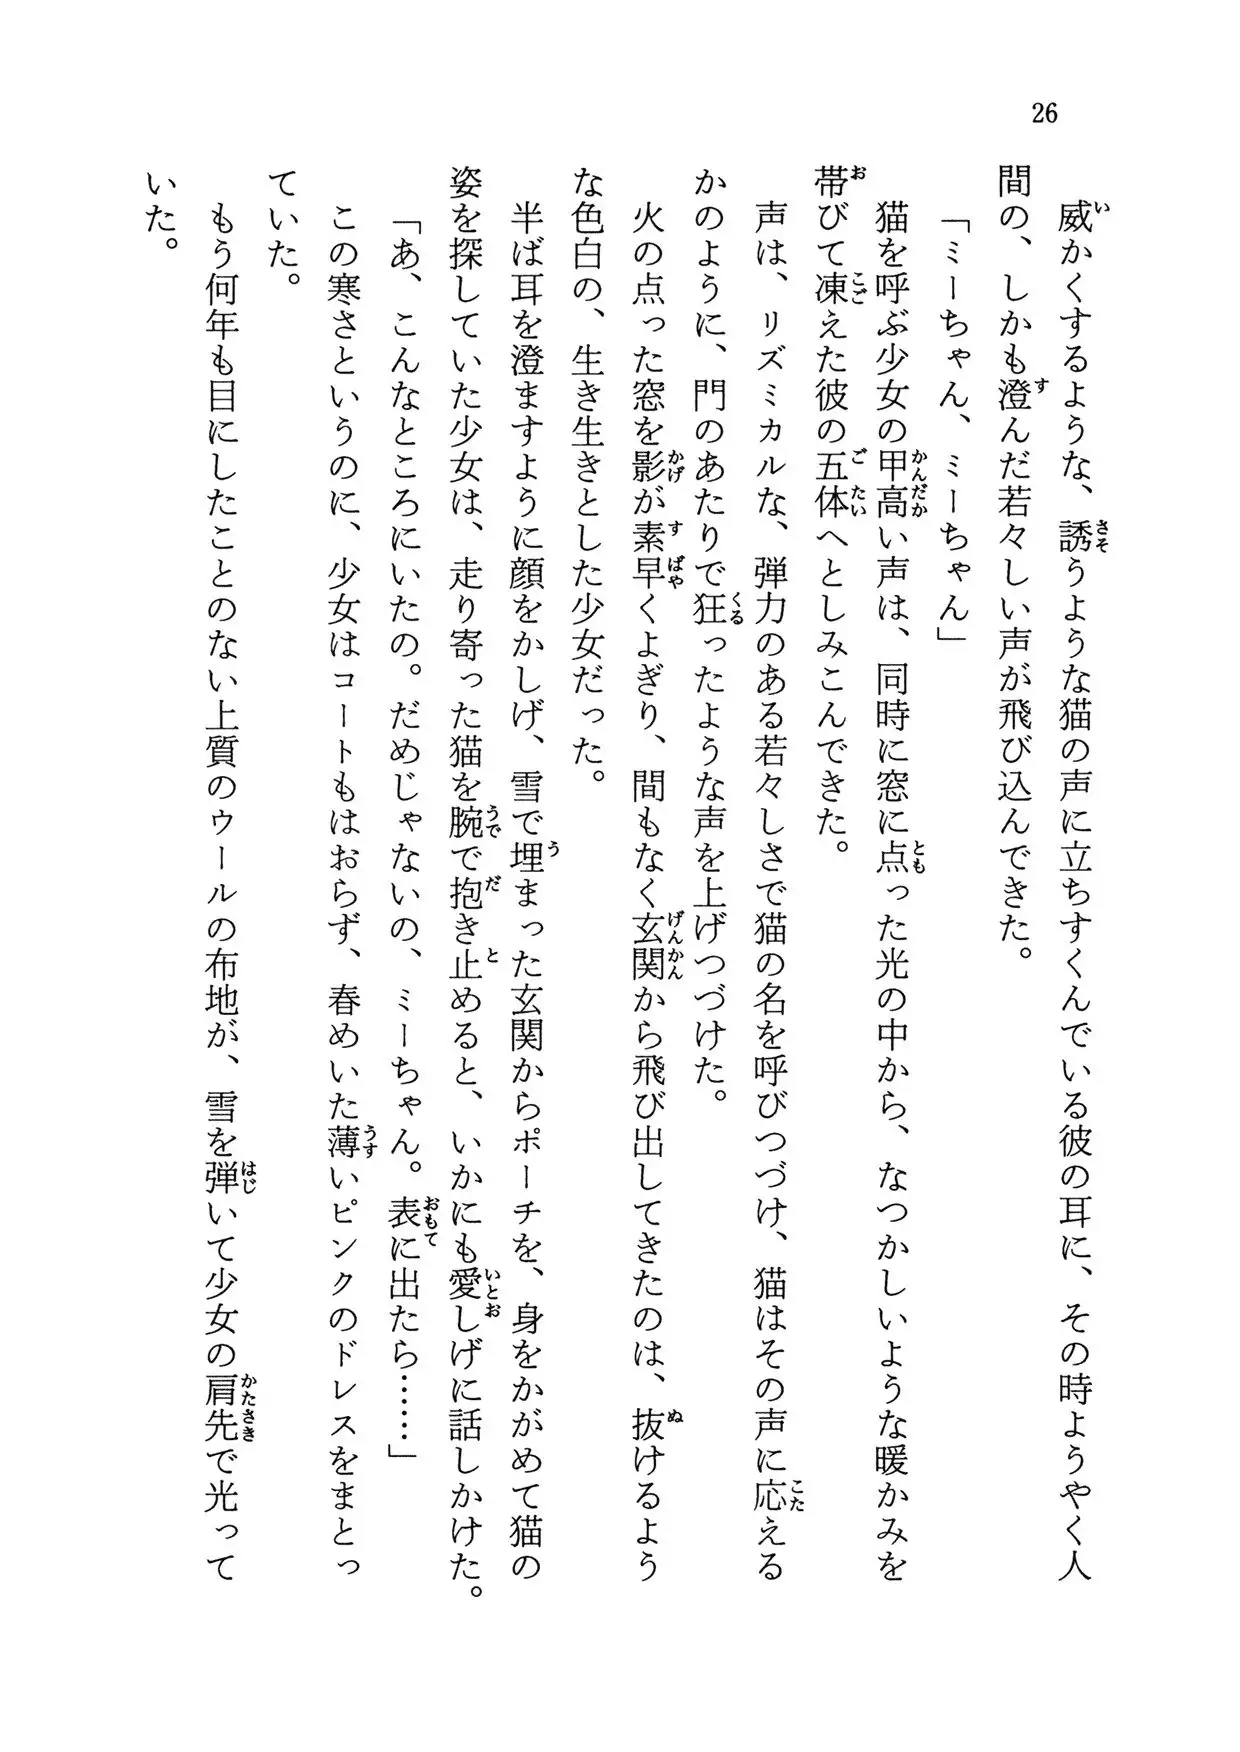 26
威かくするような、誘うような猫の声に立ちすくんでいる彼の耳に、その時ようやく人
間の、しかも澄んだ若々しい声が飛び込んできた。
「ミーちゃん、ミーちゃん」
猫を呼ぶ少女の甲高い声は、同時に窓に点った光の中から、なつかしいような暖かみを
帯びて凍えた彼の五体へとしみこんできた。
声は、リズミカルな、弾力のある若々しさで猫の名を呼びつづけ、猫はその声に応える
かのように、門のあたりで狂ったような声を上げつづけた。
火の点った窓を影が素早くよぎり、間もなく玄関から飛び出してきたのは、抜けるよう
な色白の、生き生きとした少女だった。
半ば耳を澄ますように顔をかしげ、雪で埋まった玄関からポーチを、身をかがめて猫の
姿を探していた少女は、走り寄った猫を腕で抱き止めると、いかにも愛しげに話しかけた。
「あ、こんなところにいたの。だめじゃないの、ミーちゃん。表に出たら……」
この寒さというのに、少女はコートもはおらず、春めいた薄いピンクのドレスをまとっ
ていた。
もう何年も目にしたことのない上質のウールの布地が、雪を弾いて少女の肩先で光って
いた。